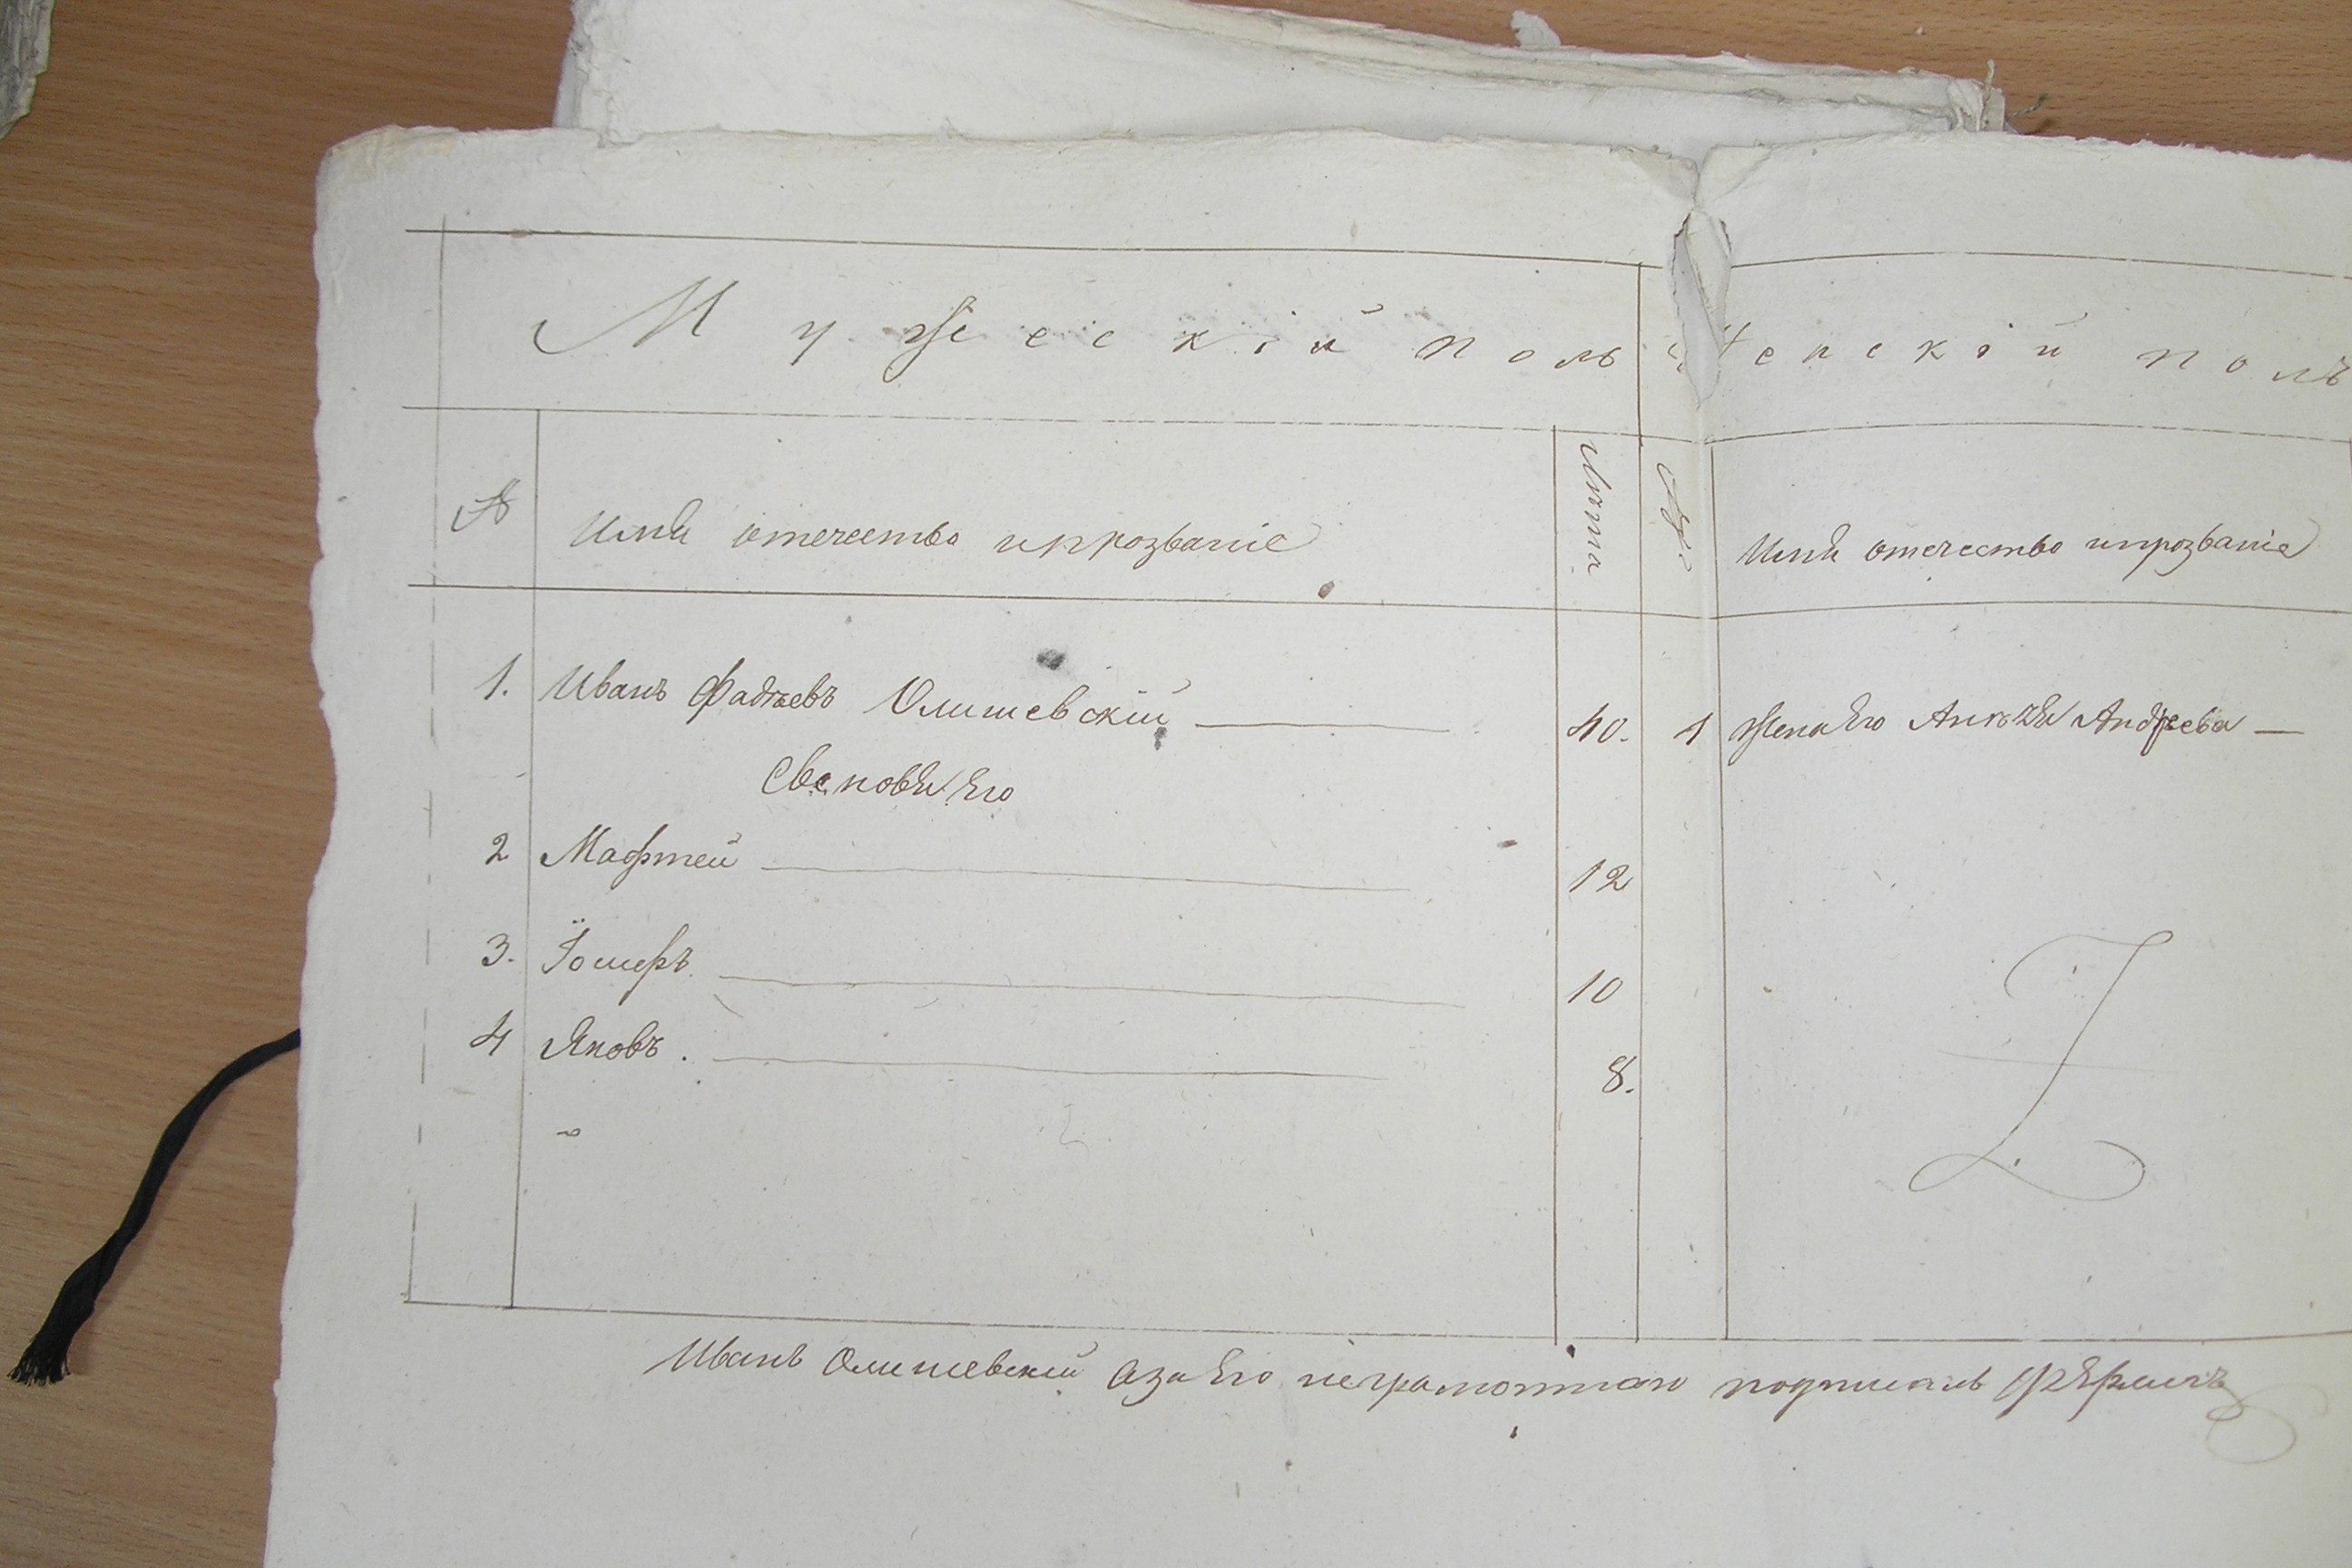 Мужескій полъ
Женскій полъ
№
Имя отечество ипрозваніе
Лѣта
№
Имя отечество ипрозваніе
1. Иванъ Фадѣевъ Олишевскій
40.
1 Жена Его Андреева
Его
2 Мафтей
12
3. Іосифъ
10
4 Яковъ.
8.
Иванъ Олишевскій аза Его подписалъ